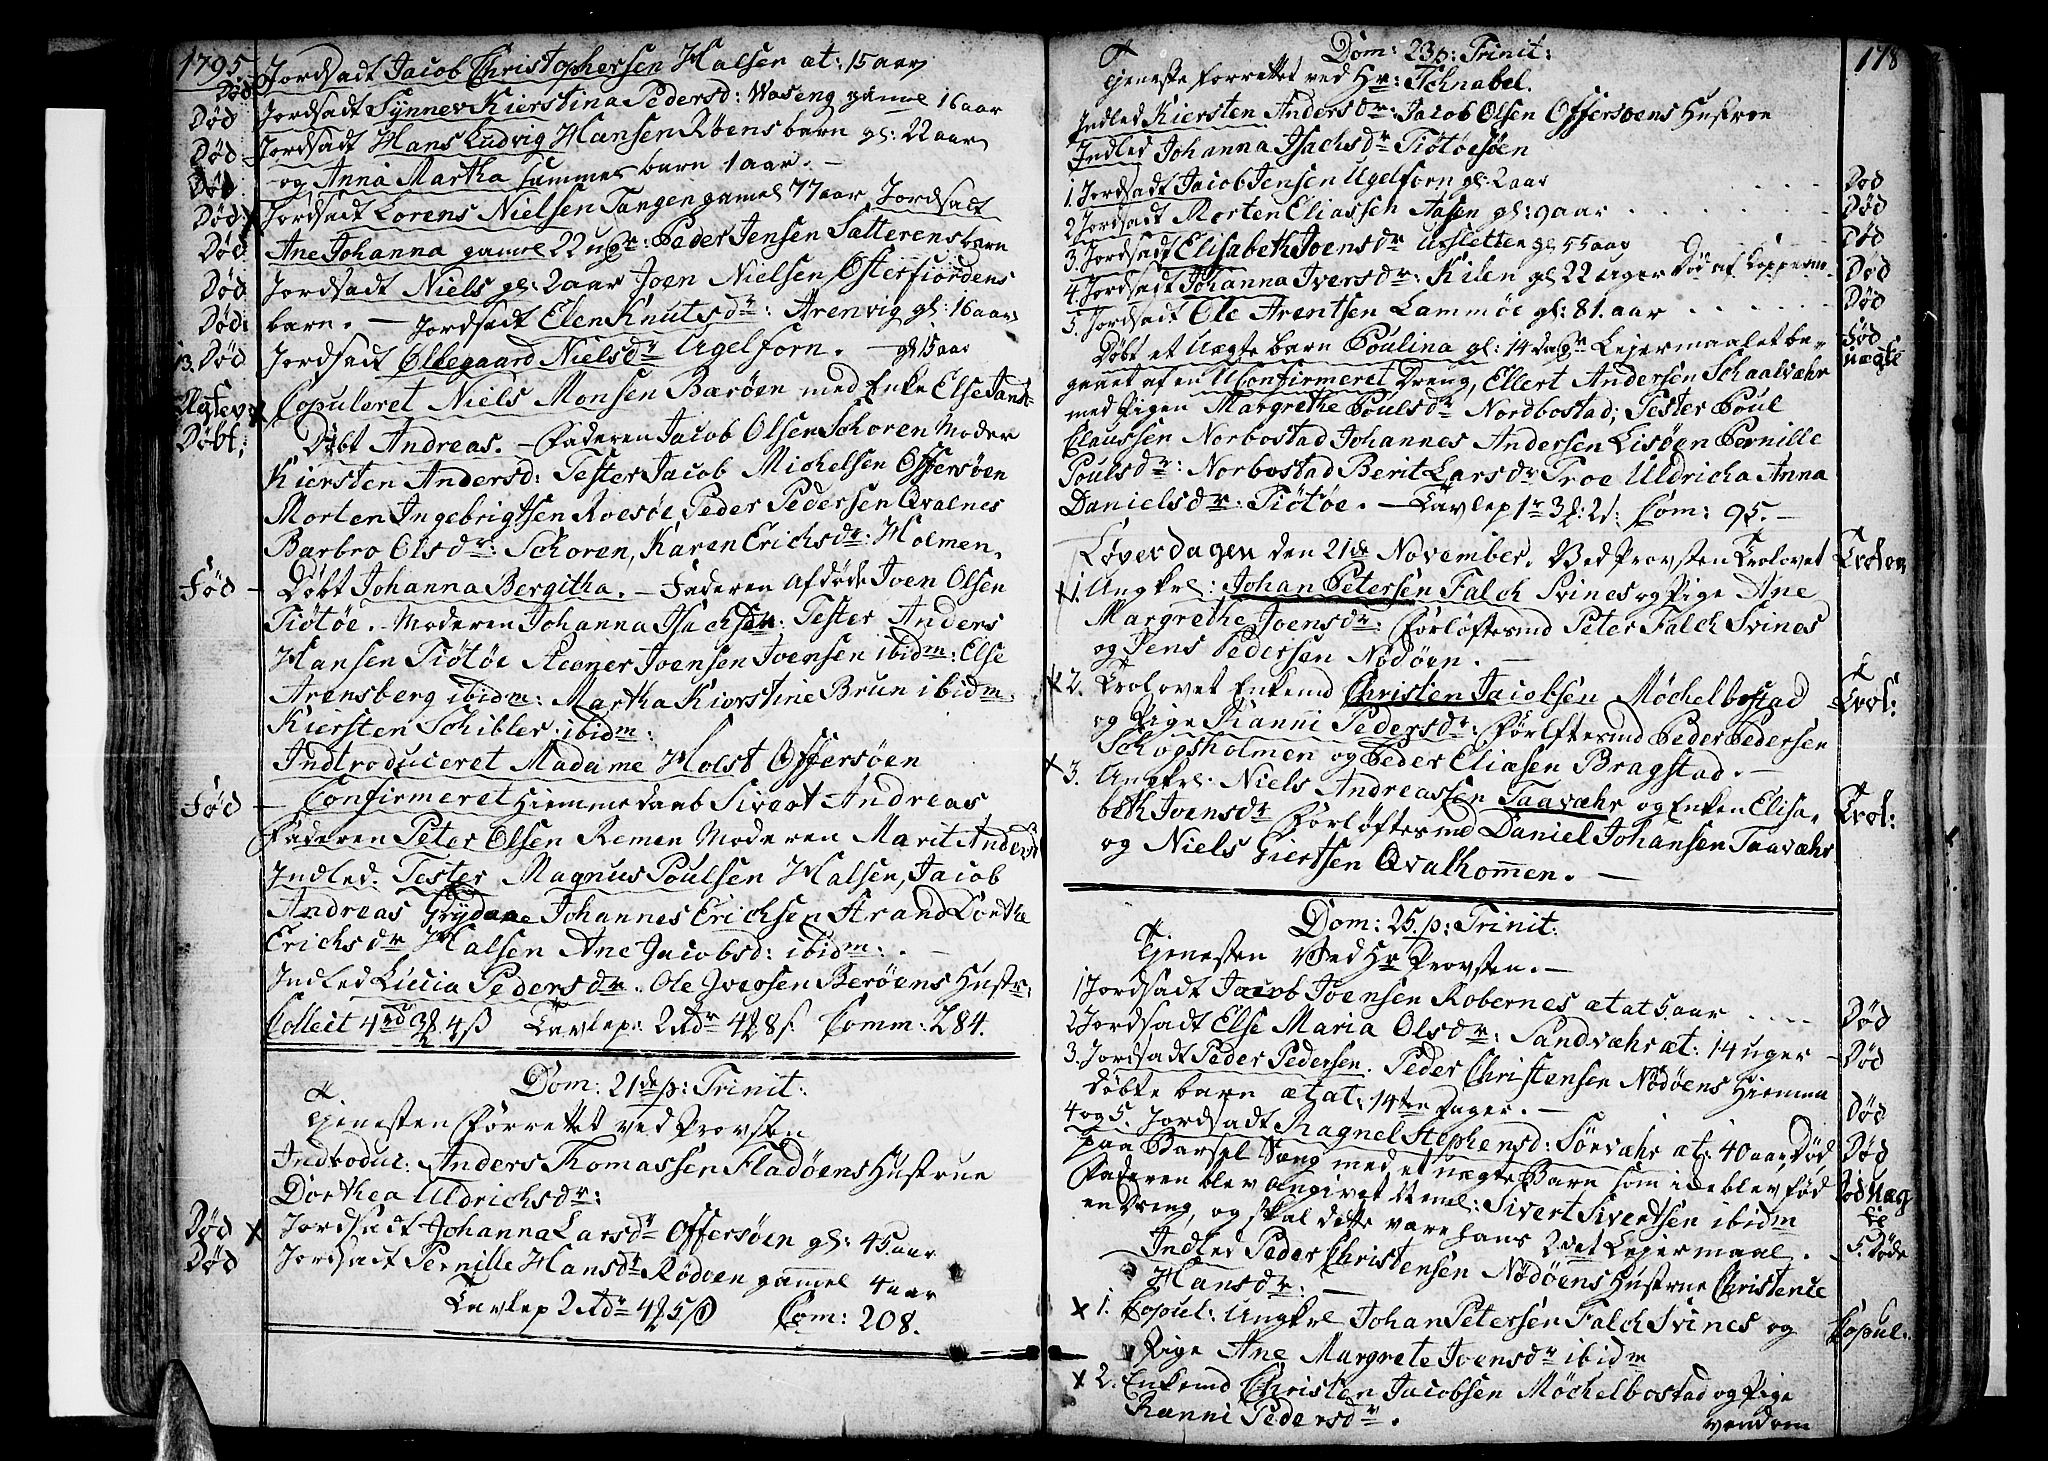 1795.
Død Jordsadt Jacob Christophersen Halsen at: 15 aar
Død Jordsadt Synnev Kierstina Pedersd: Waseng gamel 16 aar
Død Jordsadt Hans Ludvig Hansen Røens barn gl: 22 aar
Død og Anna Martha sammes barn 1 aar. -
Død Jordsadt Lorens Nielsen Tangen gamel 77 aar Jordsadt
Død Ane Johanna gamel 22 ugr: Peder Jensen Satterens barn
Død Jordsadt Niels gl: 2 aar Joen Nielsen Østerfiordens
Død: barn. - Jordsadt Elen Knutsdr: Arenvig gl: 16 aar
13. Død Jordsadt Ollegaard Nielsdr Ugelforn. - gl 15 aar
Copuleret Niels Monsen Barøen med Enke Else Jans
Døbt: Døbt Andreas. - Faderen Jacob Olsen Schoren Moder
Kiersten Andersd: Tester Jacob Michelsen Offersøen
Morten Ingebrigtsen Roesøe, Peder Pedersen Qvalnes
Barbro Olsdr: Schoren, Karen Erichsdr: Holmen.
Fød - Døbt Johanna Bergitha. - Faderen afdøde Joen Olsen
Tiøtøe. - Moderen Johanna Isachsdr: Tester Anders
Hansen Tiøtøe Joensen Joensen ibidm: Else
Arensberg ibidm: Martha Kierstine Brun ibidm
Kiersten Schibler ibidm:
Indtroduceret Madame Holst Offersøen
Fød - Confirmeret Hiemmedaab Sivert Andreas
Faderen Peter Olsen Remen Moderen Marit Andersd
Indled. Tester Magnus Poulsen Halsen, Jacob
Andreas Johannes Erichsen Strand Dorthe
Erichsdr Halsen Ane Jacobsd: ibidm: -
Indled Lucia Pedersdr. Ole Iversen Berøens Hustr:
Collect 4 3 4 ß Tavlep: 2 4 8 s. Comm: 284.
Dom: 21de p: Trinit:
Tjenesten Forrettet ved Provsten
Indroduc: Anders Thomassen Fladøens Hustrue
Dorthea Uldrichsdr:
Død x Jordsadt Johanna Larsdr Offersøen gl: 45 aar
Død Jordsadt Pernille Hansdr Rødøen gamel 4 aar
Tavlep 2 4 5 ß Com: 208.
178
Dom: 23 p: Trinit:
Tjeneste forrettet ved Hr: Schnabel.
Indled Kiersten Andersdr: Jacob Olsen Offersøens Hustrue
Indled Johanna Isachsdr Tiøtøesøen
1. Jordsadt Jacob Jensen Ugelforn gl: 2 aar Død
2 Jordsadt Morten Eliassen Aasen gl: 9 aar Død
3. Jordsadt Elisabeth Joensdr Utsletten gl: 55 aar Død
4. Jordsadt Johanna Iversdr: Kilen gl: 22 uger Død af Død
5. Jordsadt Ole Arentsen Lammøe gl: 81. aar Død
Døbt et Uægte barn Poulina gl: 14 dagr Lejermaalet be- Fød uægte
gaaet af en UConfirmeret Dreng, Ellert Andersen Schaalvæhr
med Pigen Margrethe Poulsdr Nordbostad; Tester Poul
Claussen Norbostad Johannes Andersen Lisøen Pernille
Poulsdr: Norbostad Berit Larsdr Troe Uldricha Anna
Danielsdr: Tiøtøe. - Tavlep 1 3 : 2 : Com: 95. -
Løverdagen den 21de November. Ved Provsten Trolovet Trolov
x 1. Ungkrl: Johan Petersen Falch Svines og Pige Ane
Margrethe Joensdr: Forløftesmd Peter Falch Svines
og Jens Pedersen Nødøen. -
x 2. Trolovet Enkemd Christen Jacobsen Møchelbostad Trol:
og Pige Rianni Pedersdr: Forlftesmd Peder Pedersen
Schogsholmen og Peder Eliasen Bragstad. -
x 3. Ungkrl. Niels Andreassen Taavæhr og Enken Elisa- Trol:
beth Joensdr Forløftesmd Daniel Johansen Taavæhr
og Niels Giertsen Qvalhommen. -
Dom: 25. p: Trinit:
Tjenesten Ved Hr Provsten. -
1 Jordsadt Jacob Joensen Robernes ætat 5 aar Død
2 Jordsadt Else Maria Olsdr: Sandvæhr æt: 14 uger Død
3. Jordsadt Peder Pedersen. Peder Christensen Nødøens Hiemme
døbte barn ætat: 14ten Dager. - Død
4 og 5. Jordsadt Ragnel Stephensd: Sørvæhr æt: 40 aar, Død Død
paa Barsel Seng med et uægte Barn som icke blev fød
Faderen blev Angivet Neml: Sivert Siverdtsen ibidm
en Dreng, og skal dette være hans 2det Lejermaal.
Indled Peder Christensen Nødøens Hustrue Christence 5. Døde
Hansdr: -
x 1. Copul: Ungkrl Johan Petersen Falch Svines og Copul:
Pige Ane Margrete Joensdr ibidm
x 2. Enkemd Christen Jacobsen Møchelbostad og Pige
Ranni Pedersdr.
vendom